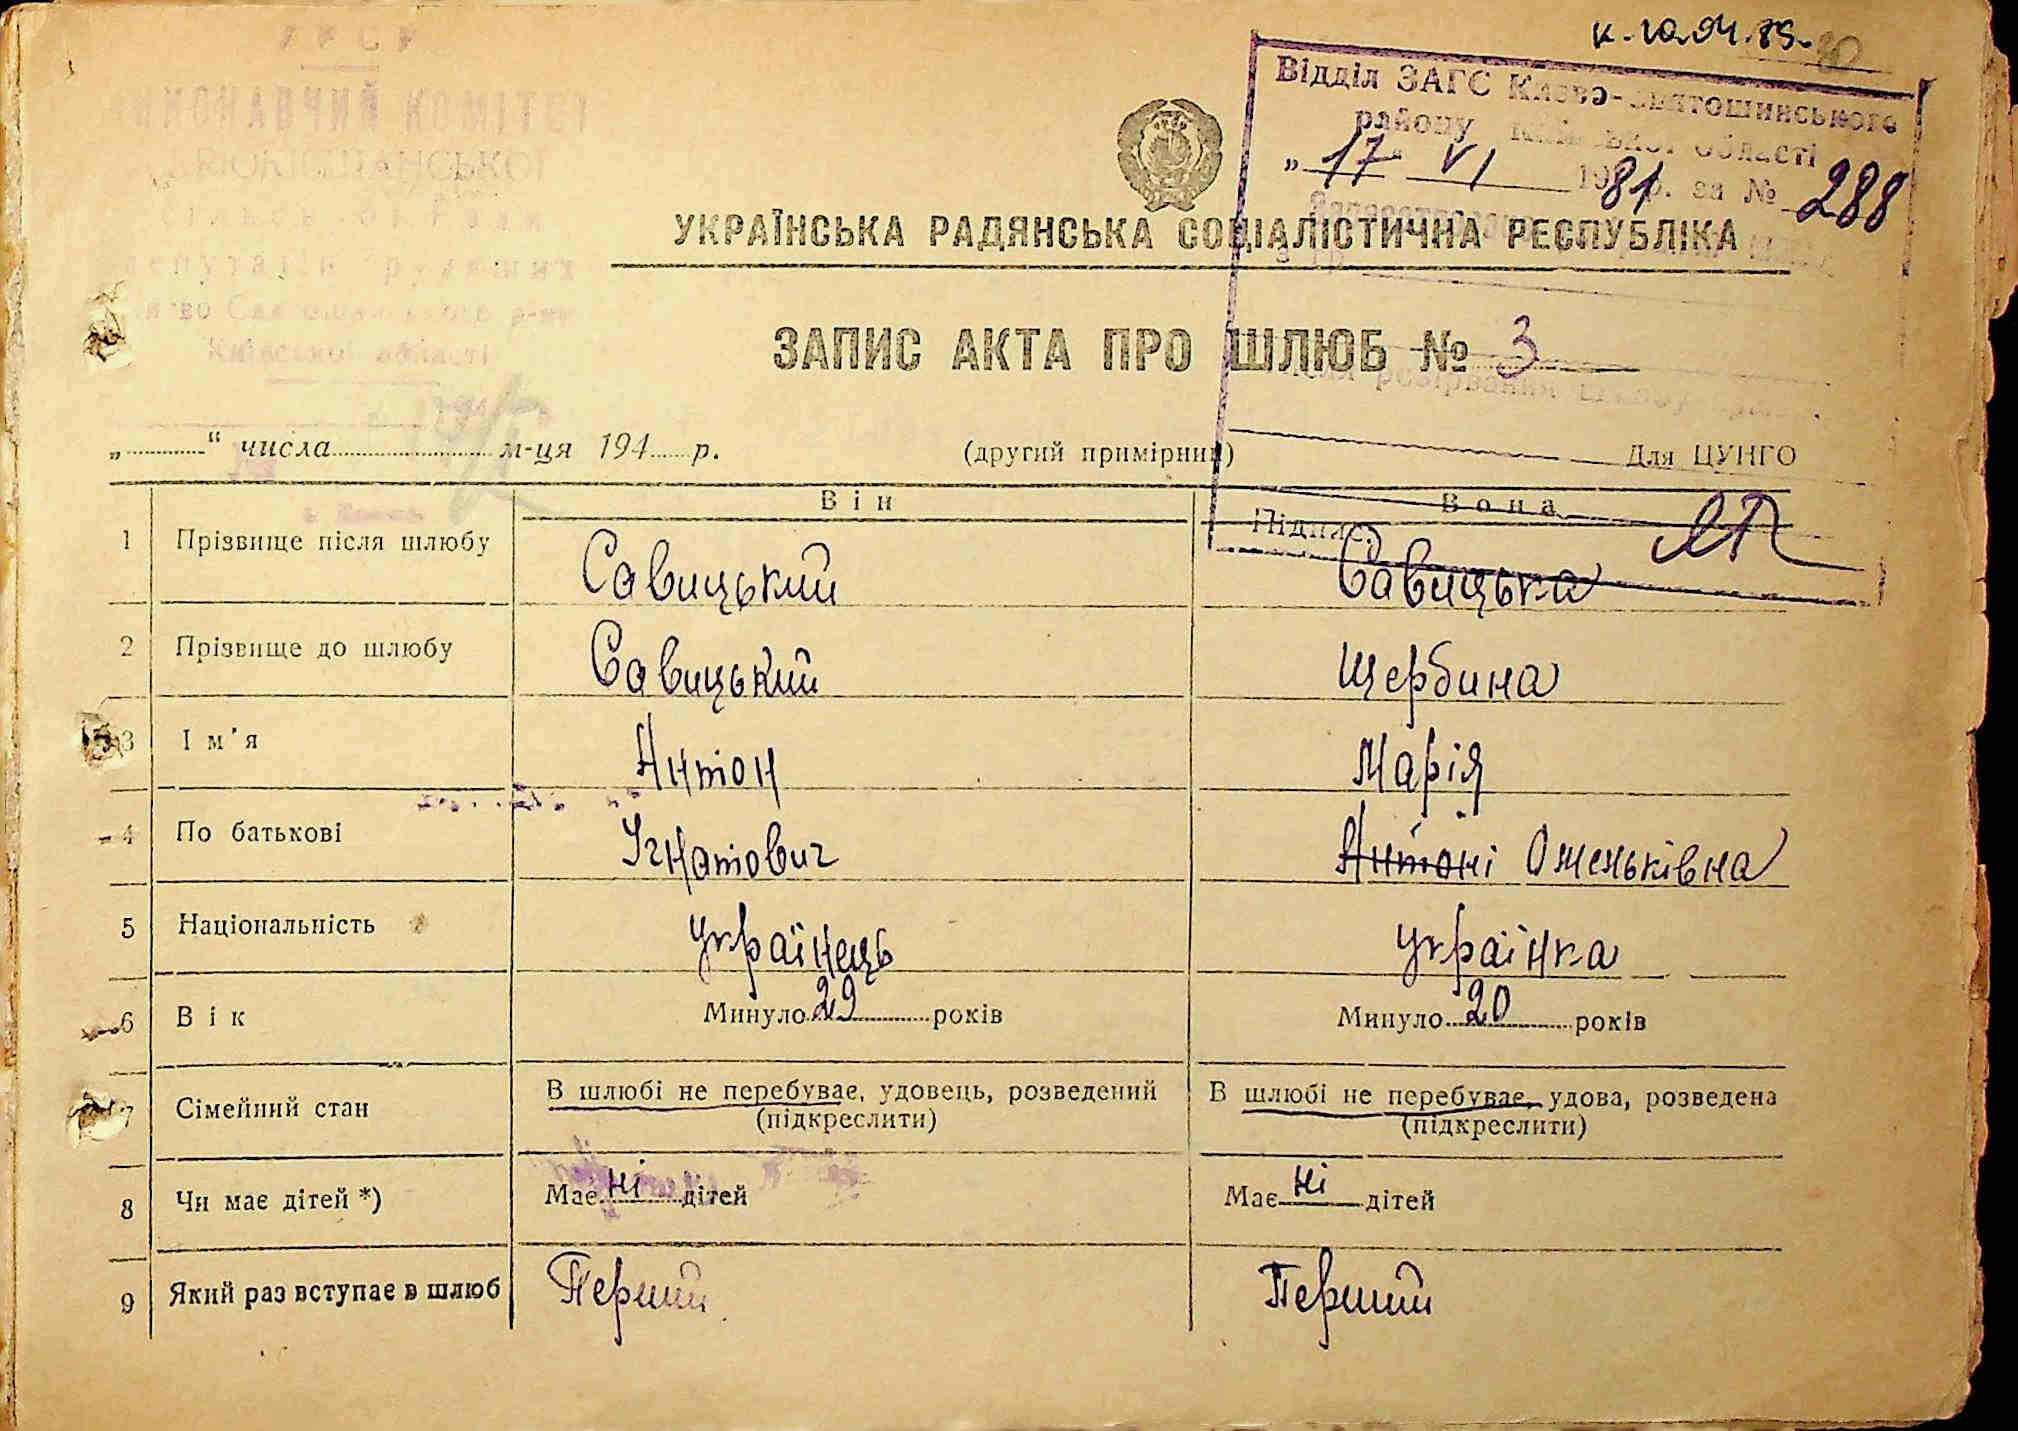 к. 10.04.85. 80
УРСР
ВИКОНАВЧИЙ КОМІТЕТ
Київської області
Відділ ЗАГС Києво-Святошинського
району Київської області
„17“ VI 1981 р. за № 288
УКРАЇНСЬКА РАДЯНСЬКА СОЦІАЛІСТИЧНА РЕСПУБЛІКА
ЗАПИС АКТА ПРО ШЛЮБ № 3
„ “ числа м-ця 194 р. (другий примірник) Для ЦУНГО
Він Вона
Підпис.
1 Прізвище після шлюбу Савицький Савицька
2 Прізвище до шлюбу Савицький Щербина
3 Ім'я Антон Марія
4 По батькові Ігнатович Антоні Омельківна
5 Національність українець українка
6 Вік Минуло 29 років Минуло 20 років
7 Сімейний стан В шлюбі не перебуває, удовець, розведений В шлюбі не перебуває, удова, розведена
(підкреслити) (підкреслити)
8 Чи має дітей *) Має ні дітей Має ні дітей
9 Який раз вступає в шлюб Перший Перший